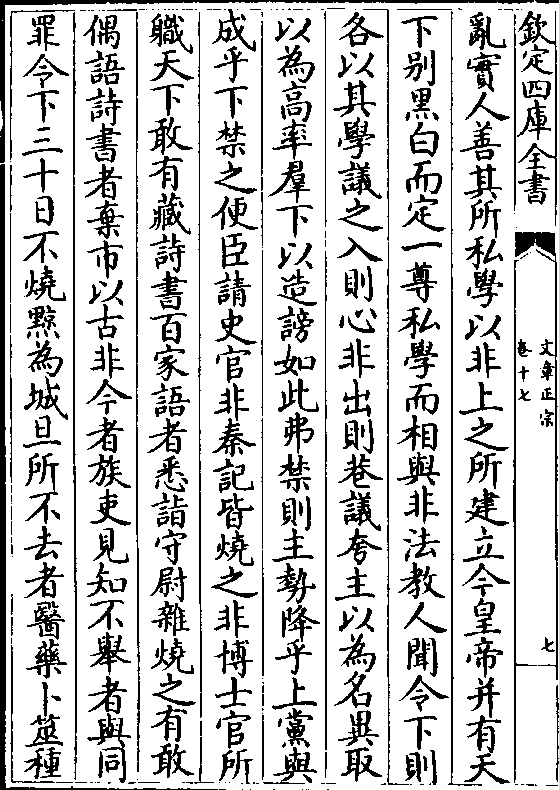 欽定四庫全書
文章正宗
卷十七
七
亂實人善其所私學以非上之所建立今皇帝并有天
下别黑白而定一尊私學而相與非法教人聞令下則
各以其學議之入則心非出則巷議夸主以為名異取
以為高率羣下以造謗如此弗禁則主勢降乎上黨與
成乎下禁之便臣請史官非秦記皆燒之非博士官所
職天下敢有藏詩書百家語者悉詣守尉雜燒之有敢
偶語詩書者棄市以古非今者族吏見知不舉者與同
罪令下三十日不燒黥為城旦所不去者醫藥卜筮種